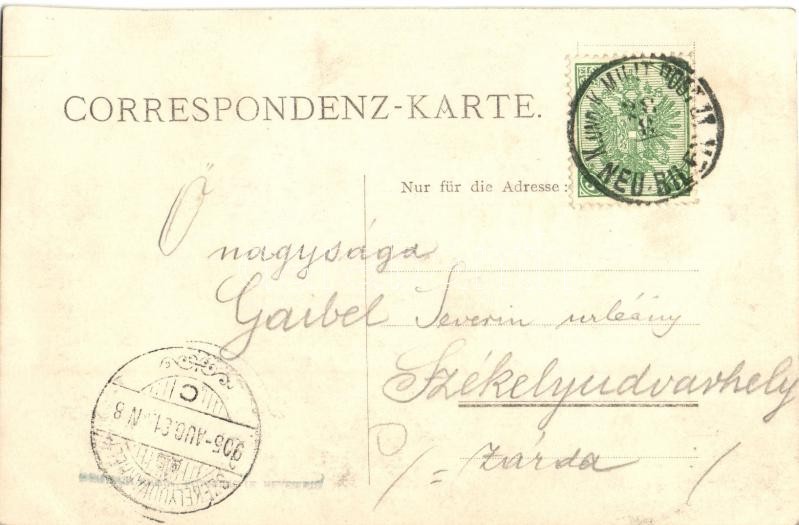 CORRESPONDENZ-KARTE.
K. UND K. MILIT. POST
NEU-BILEK
Nur für die Adresse:
Ő
nagysága
Gaibel Severin urleány
Székelyudvarhely
/= zárda /
905-AUG.31.-N 8
C